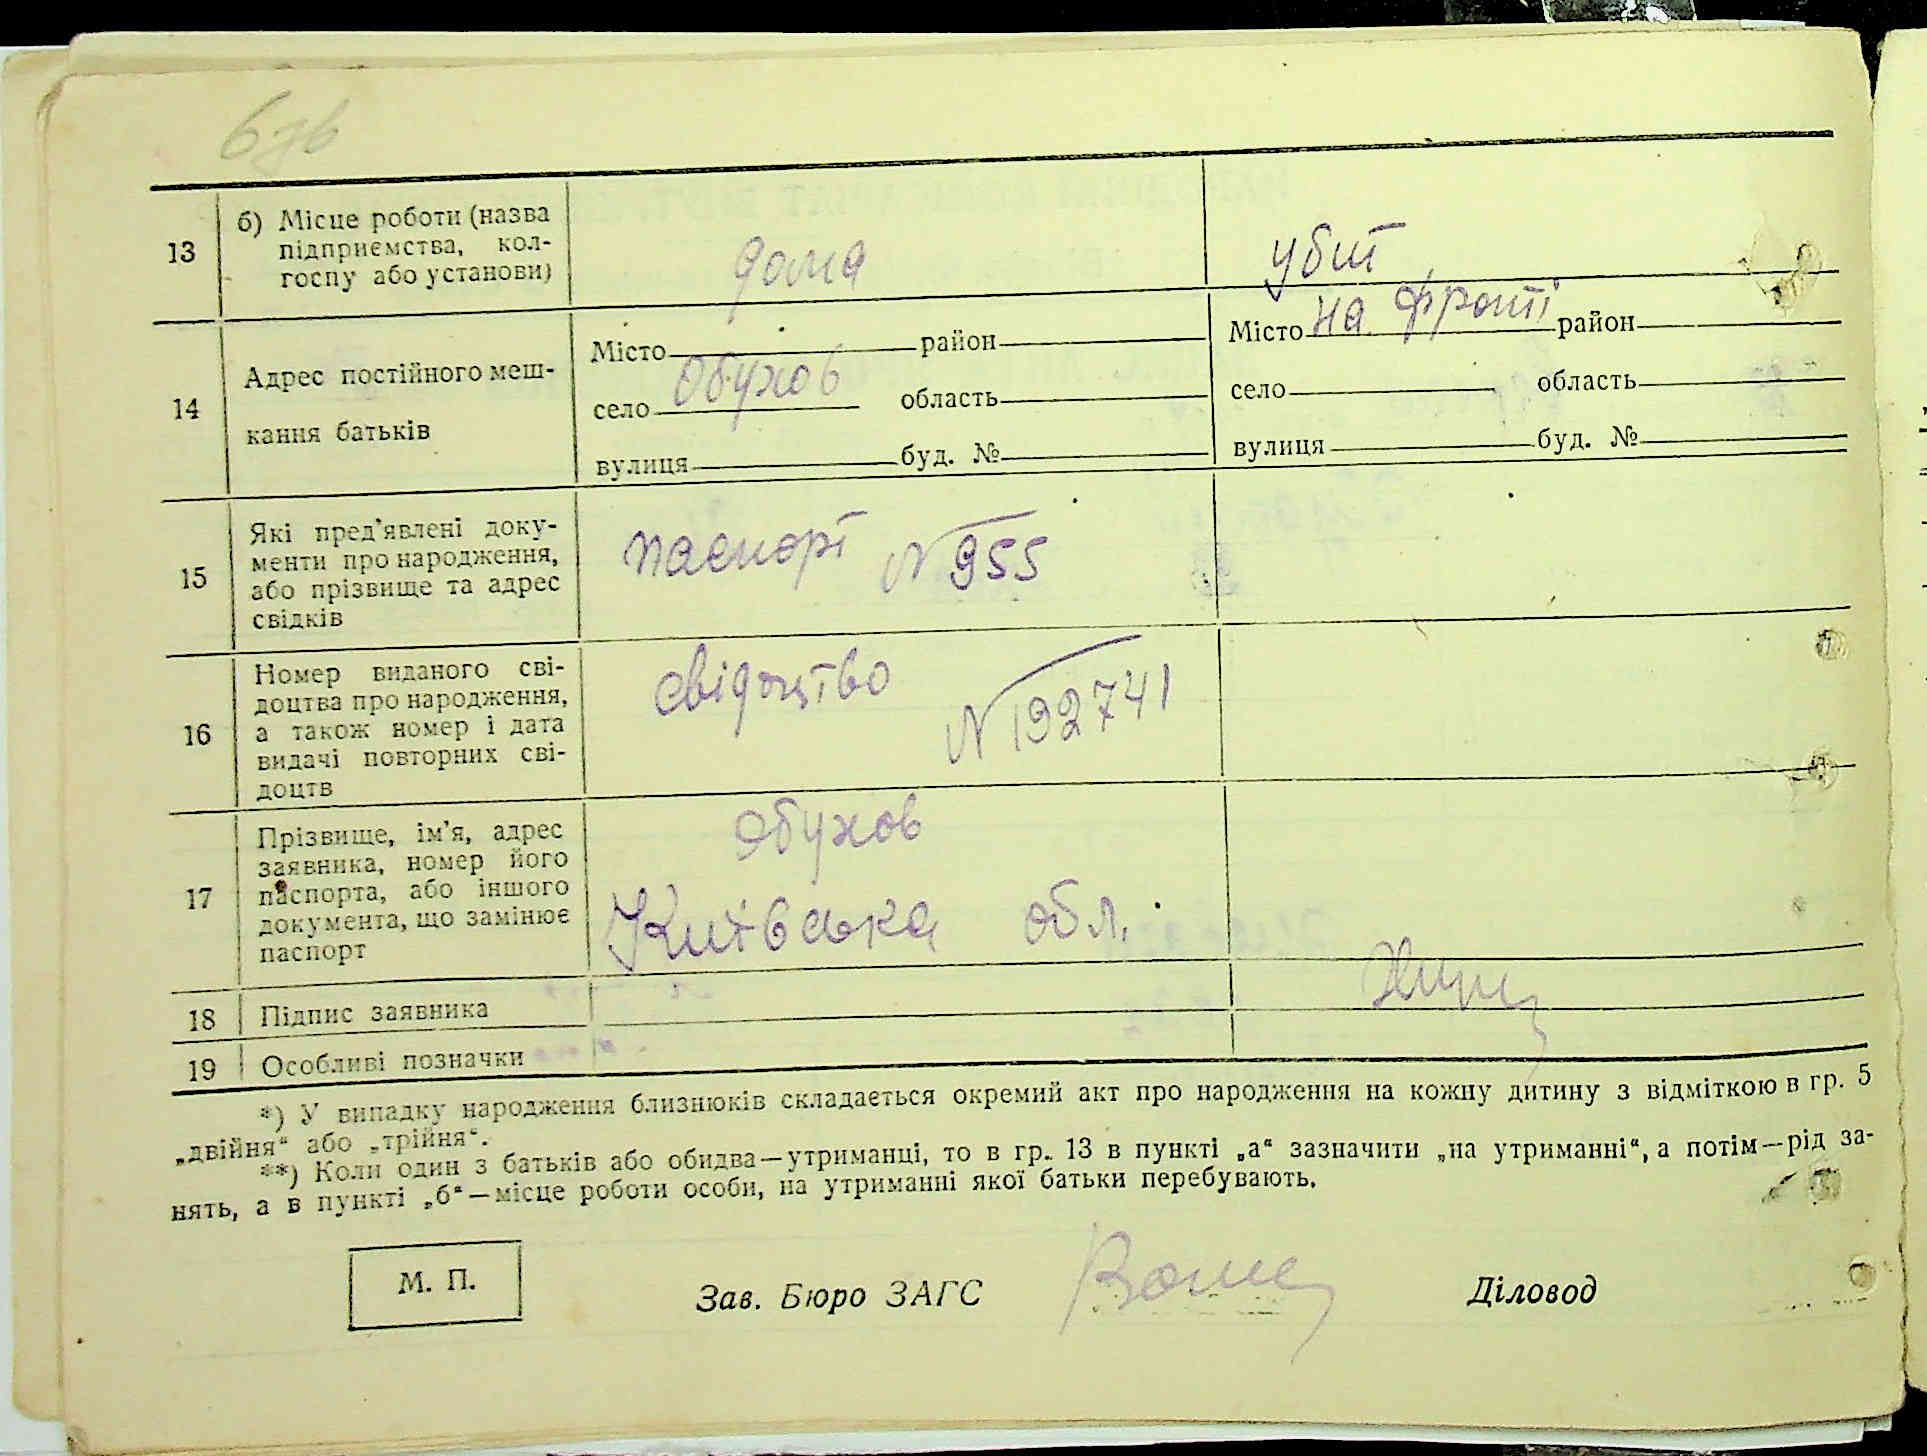 13
б) Місце роботи (назва
підприємства, кол-
госпу або установи)
дома
убит
на фронті
14
Адрес постійного меш-
кання батьків
Місто район
село Обухов область
вулиця буд. №
Місто район
село область
вулиця буд. №
15
Які пред'явлені доку-
менти про народження,
або прізвище та адрес
свідків
паспорт N 955
16
Номер виданого сві-
доцтва про народження,
а також номер і дата
видачі повторних сві-
доцтв
свідоцтво
N 192741
17
Прізвище, ім'я, адрес
заявника, номер його
паспорта, або іншого
документа, що замінює
паспорт
Обухов
Київська обл.
18
Підпис заявника
19
Особливі позначки
*) У випадку народження близнюків складається окремий акт про народження на кожну дитину з відміткою в гр. 5
„двійня“ або „трійня“.
**) Коли один з батьків або обидва—утриманці, то в гр. 13 в пункті „а“ зазначити „на утриманні“, а потім—рід за-
нять, а в пункті „б“—місце роботи особи, на утриманні якої батьки перебувають.
М. П.
Зав. Бюро ЗАГС
Діловод